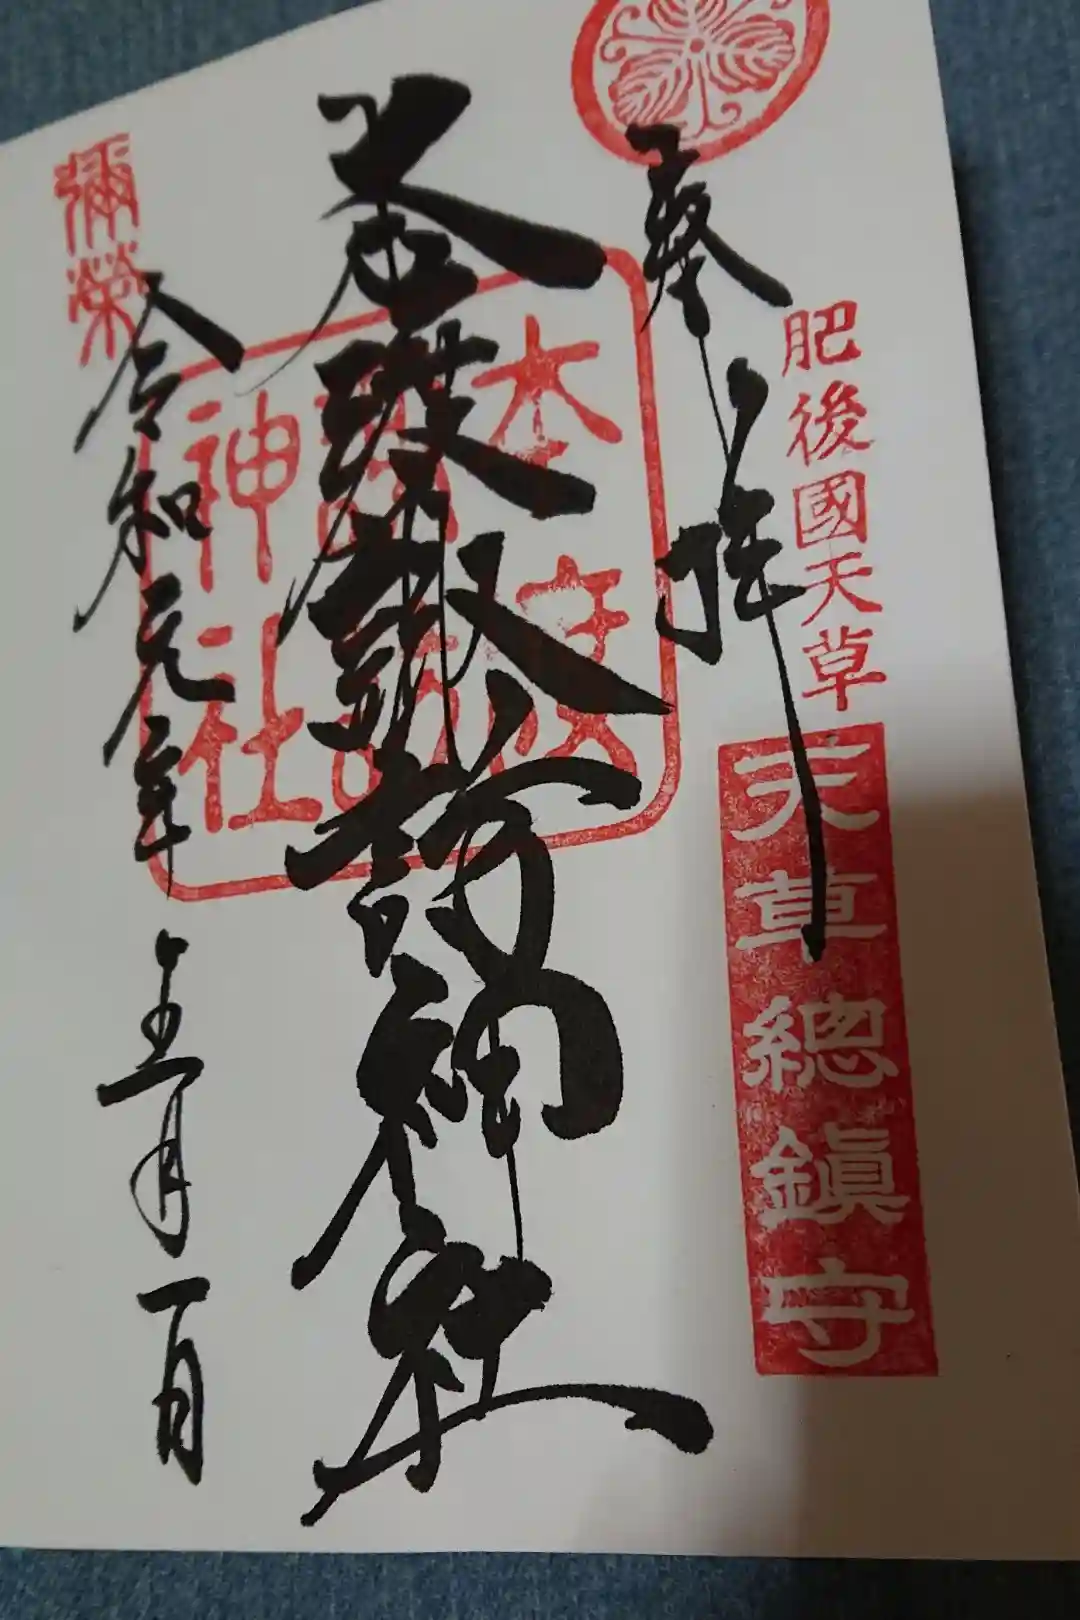 肥後國天草
天草總鎮守
奉拝
本渡諏訪神社
本渡
諏訪
神社
彌榮
令和元年五月一日